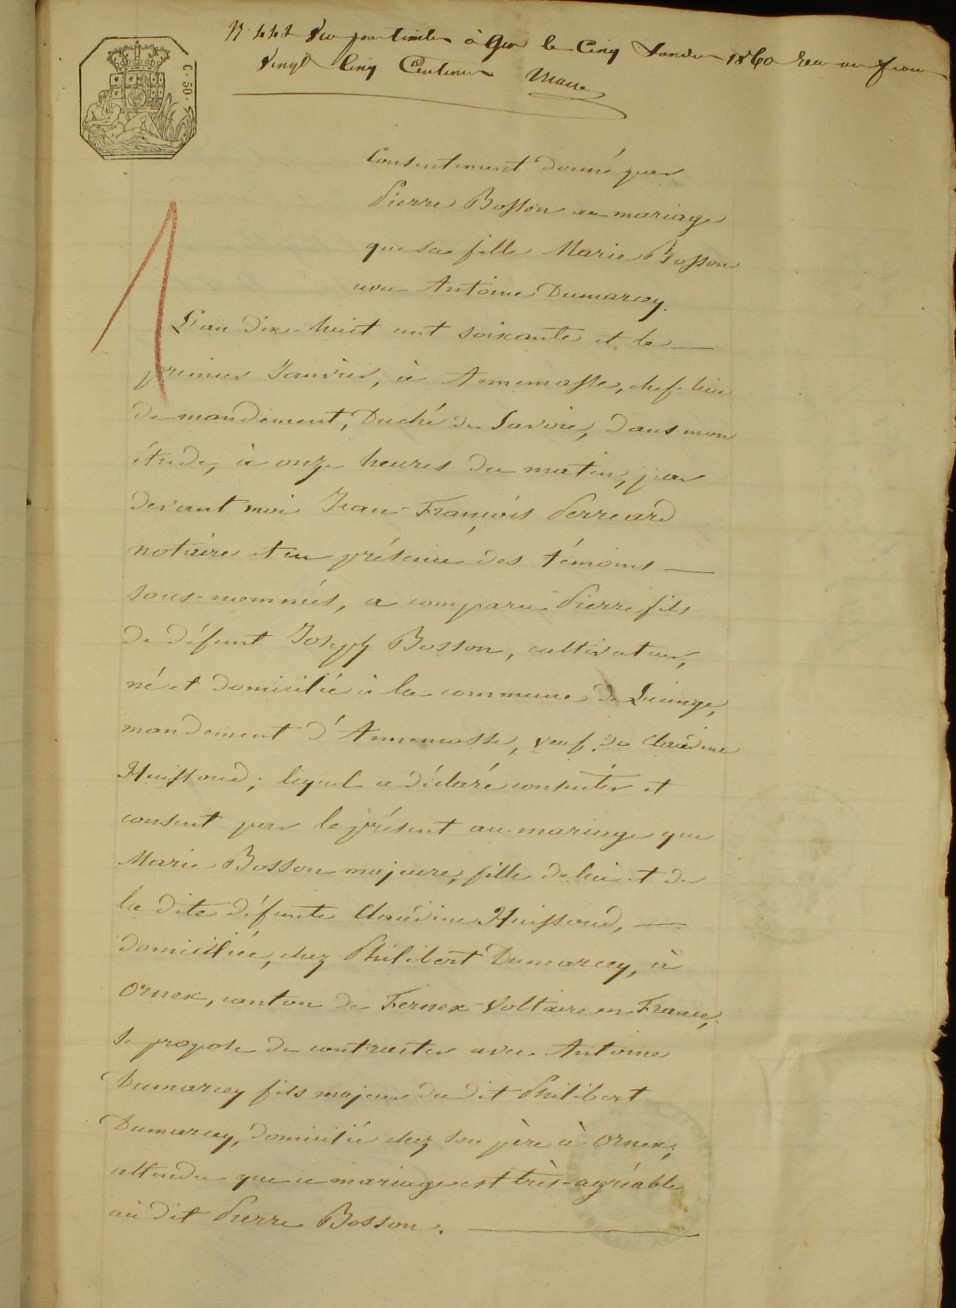 N° 442 Vu pour timbre à Gex le Cinq Janvier 1860 reçu un franc
Vingt Cinq Centimes
C. 50.
Consentement donné par
Pierre Bosson au mariage
que sa fille Marie Bosson
avec Antoine Dumarcey.
L'an dix-huit cent soixante et le
premier Janvier, à Annemasse, chef-lieu
de mandement, Duché de Savoie, dans mon
étude, à onze heures du matin, par
devant moi Jean-François Perreard
notaire et en présence des témoins
sous-nommés, a comparu Pierre fils
de défunt Joseph Bosson, cultivateur,
né et domicilié à la commune de Lucinge,
mandement d'Annemasse, veuf de Claudine
Huissoud; lequel a déclaré consentir et
consent par le présent au mariage que
Marie Bosson majeure, fille de lui et de
la dite défunte Claudine Huissoud,
domiciliée, chez Philibert Dumarcey, à
Ornex, canton de Fernex-Voltaire en France,
se propose de contracter avec Antoine
Dumarcey fils majeur du dit Philibert
Dumarcey, domicilié chez son père à Ornex;
attendu que ce mariage est très-agréable
au dit Pierre Bosson.